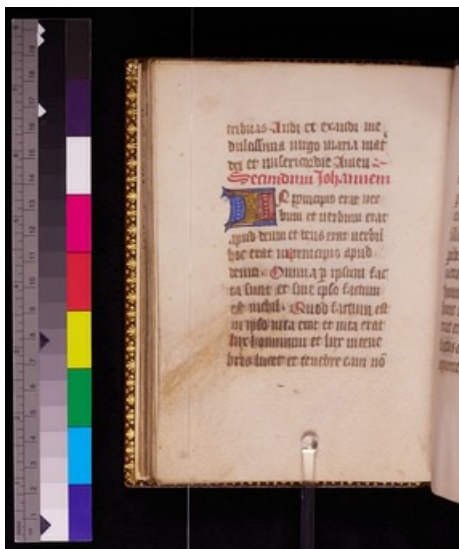 tribuas Audi et exaudi me
dulcissima uirgo maria mat
dei et misericordie Amen
Secundum Johannem
In principio erat uer
bum et uerbum erat
apud deum et deus erat uerbū
hoc erat in principio apud
deum. Omnia p ipsum fac
ta sunt et sine ipso factum
est nichil. Quod factum est
in ipso uita erat et uita erat
lux hominum et lux in tene
bris lucet et tenebre eam nō